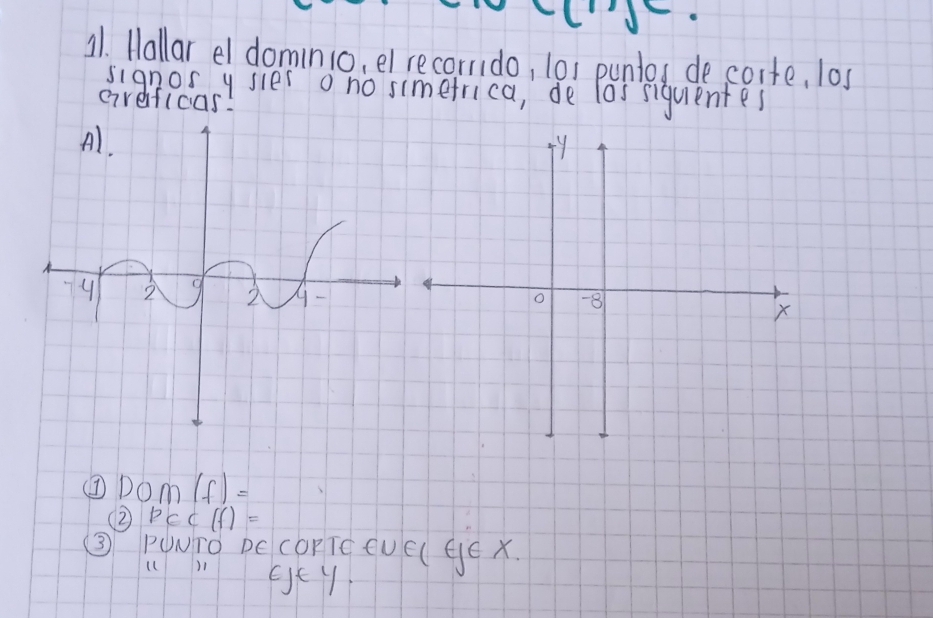 1). Hallar el dominio, el recorrido, los puntos de corte, los
signos y sies o no simetrica, de las siguientes
Graficas:
A).
y
-4 2 0 2 4 -
0 -8
x
① Dom (f) =
② REC (f) =
③ PUNTO DE CORTE EN EL EJE X.
" " EJE Y.